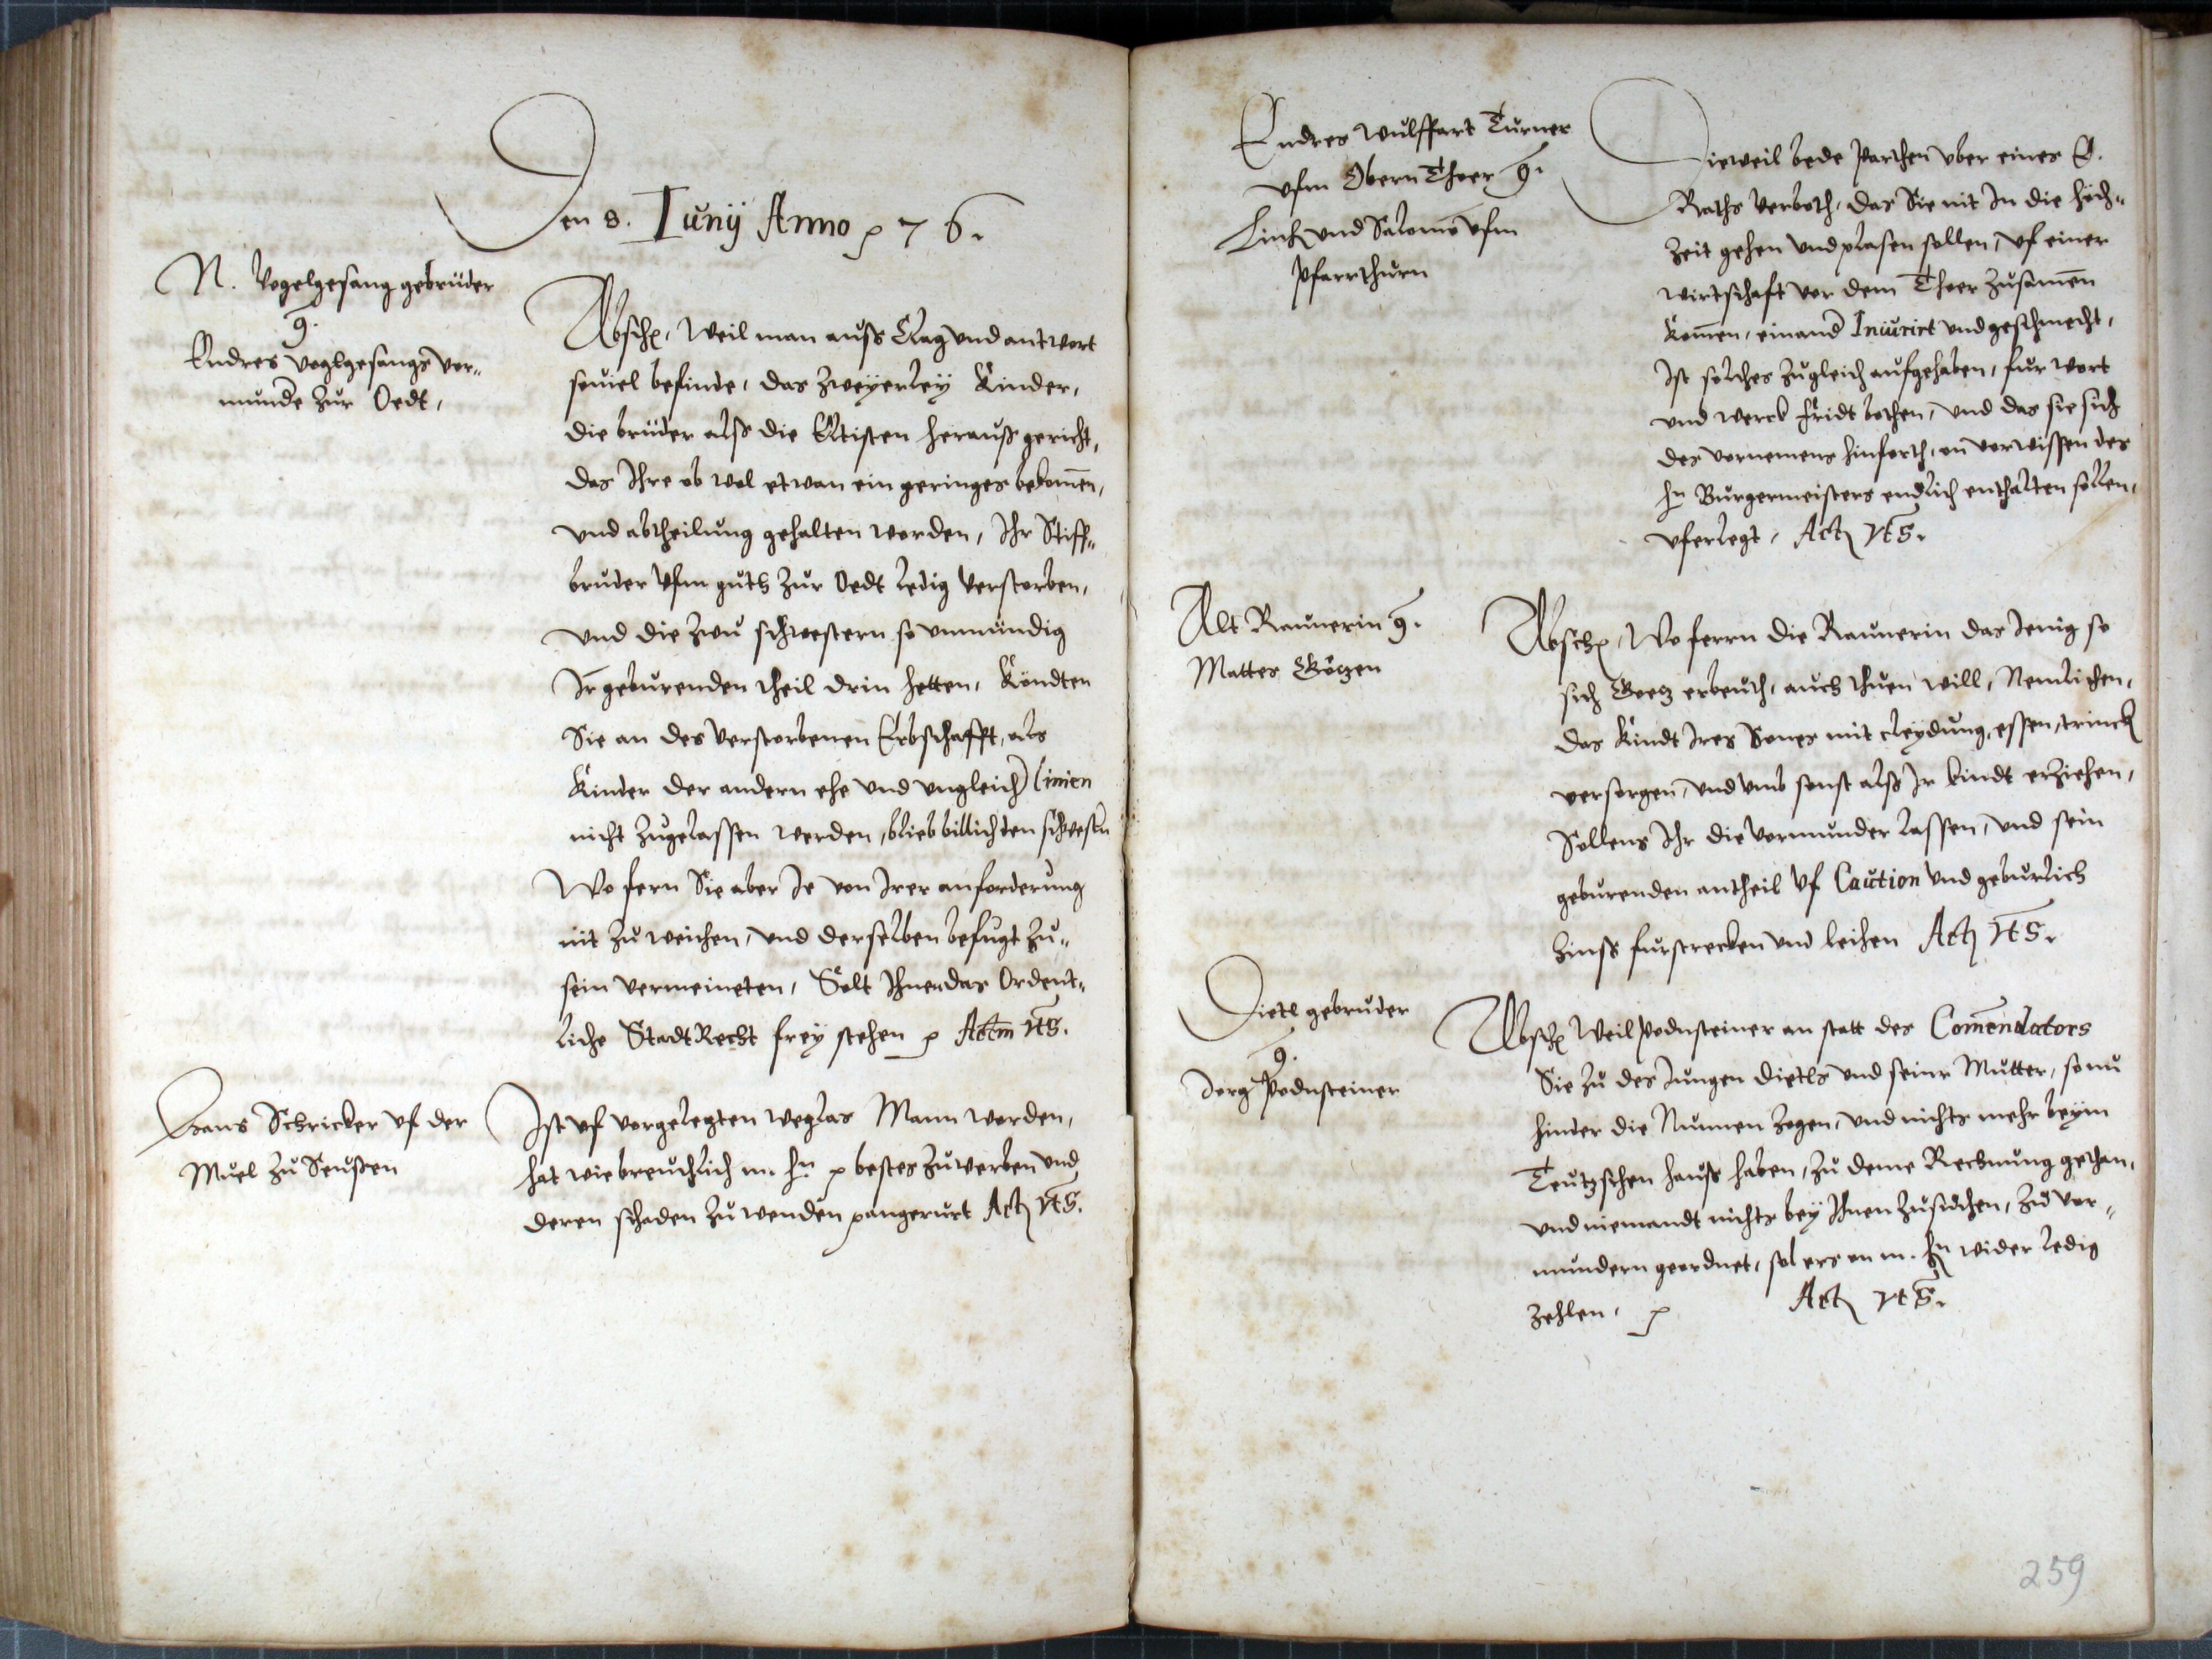 Den 8. Iunÿ Anno p 76.
N. Vogelgesang gebrüder
g.
Endres voglgesangs vor„
munde zur Oedt,
Absch, Weil man auss Clag vnd antwort
souiel befinde, das zweÿerleÿ Kinder,
die brüder alss die Eltisten herauß gericht,
das Ihre ob wol etwan ein geringes bekom̄en,
vnd abtheilung gehalten worden, Ihr Stiff„
bruder vfm guth zur Oedt ledig verstorben,
vnd die zwu schwestern so vnmündig
Ir geburenden theil drin hetten, Köndten
Sie an des verstorbenen Erbschafft, als
Kinder der andern ehe vnd vngleich linien
nicht zugelassen werden, blieb billich den schwestn
Wo fern Sie aber Je von Irer anforderung
nit zu weichen, vnd derselben befugt zu„
sein vermeineten, Solt Ihnen das Ordent„
liche StadtRecht freÿ stehen p Actm vts.
Hans Schricker vf der
Muel zu Seussen
Ist vf vorgelegten weglas Mann worden,
hat wie breuchlich m. hn p bestes zuwerben vnd
deren schaden zu wenden p angerurt Act vts.
Endres Wulffart Turner
vfm Obern Thor g.
Linh vnd Salomō vfm
Pfarrthurn
Dieweil bede Parthen vber eines E.
Raths verboth, das Sie nit In die hoch„
zeit gehen vnd plasen sollen, vf einer
wirtschaft vor dem Thor zusam̄en
kom̄en, einand Iniurirt vnd geschmecht,
Ist solches zugleich aufgehaben, fur wort
vnd werck fridt bothen, vnd das sie sich
des vornemens hinforth, on vorwissen des
hn Burgermeisters endlich enthalten sollen,
vferlegt, Act vts.
Alt Raunerin g.
Mattes Götzen
Absch, Wo ferrn die Raunerin das Jenig so
sich Goetz erbeuth, auch thuen will, Nemlichen,
das Kindt Ires Sones mit cleÿdung, essen, trinck
versorgen, vnd vmb sonst alß Ir kindt erziehen,
Sollens Ihr die vormunder lassen, vnd sein
geburenden antheil vf Caution vnd geburlich
Zinss furstrecken vnd leihen Act vts.
Dietl gebruder
g.
Jorg Podnsteiner
Absch Weil Podnsteiner an statt des Com̄endators
Sie zu des Jungen Dietls vnd seinr Mutter, so nu
hinter die Nunnen zogen, vnd nichts mehr beÿm
Teutzschen hauss haben, zu deme Rechnung gethan,
vnd niemandt nichts beÿ Ihnen zusuchen, zu vor„
mundern geordnet, sol ers on m. hn wider ledig
zehlen, p Act vts.
259